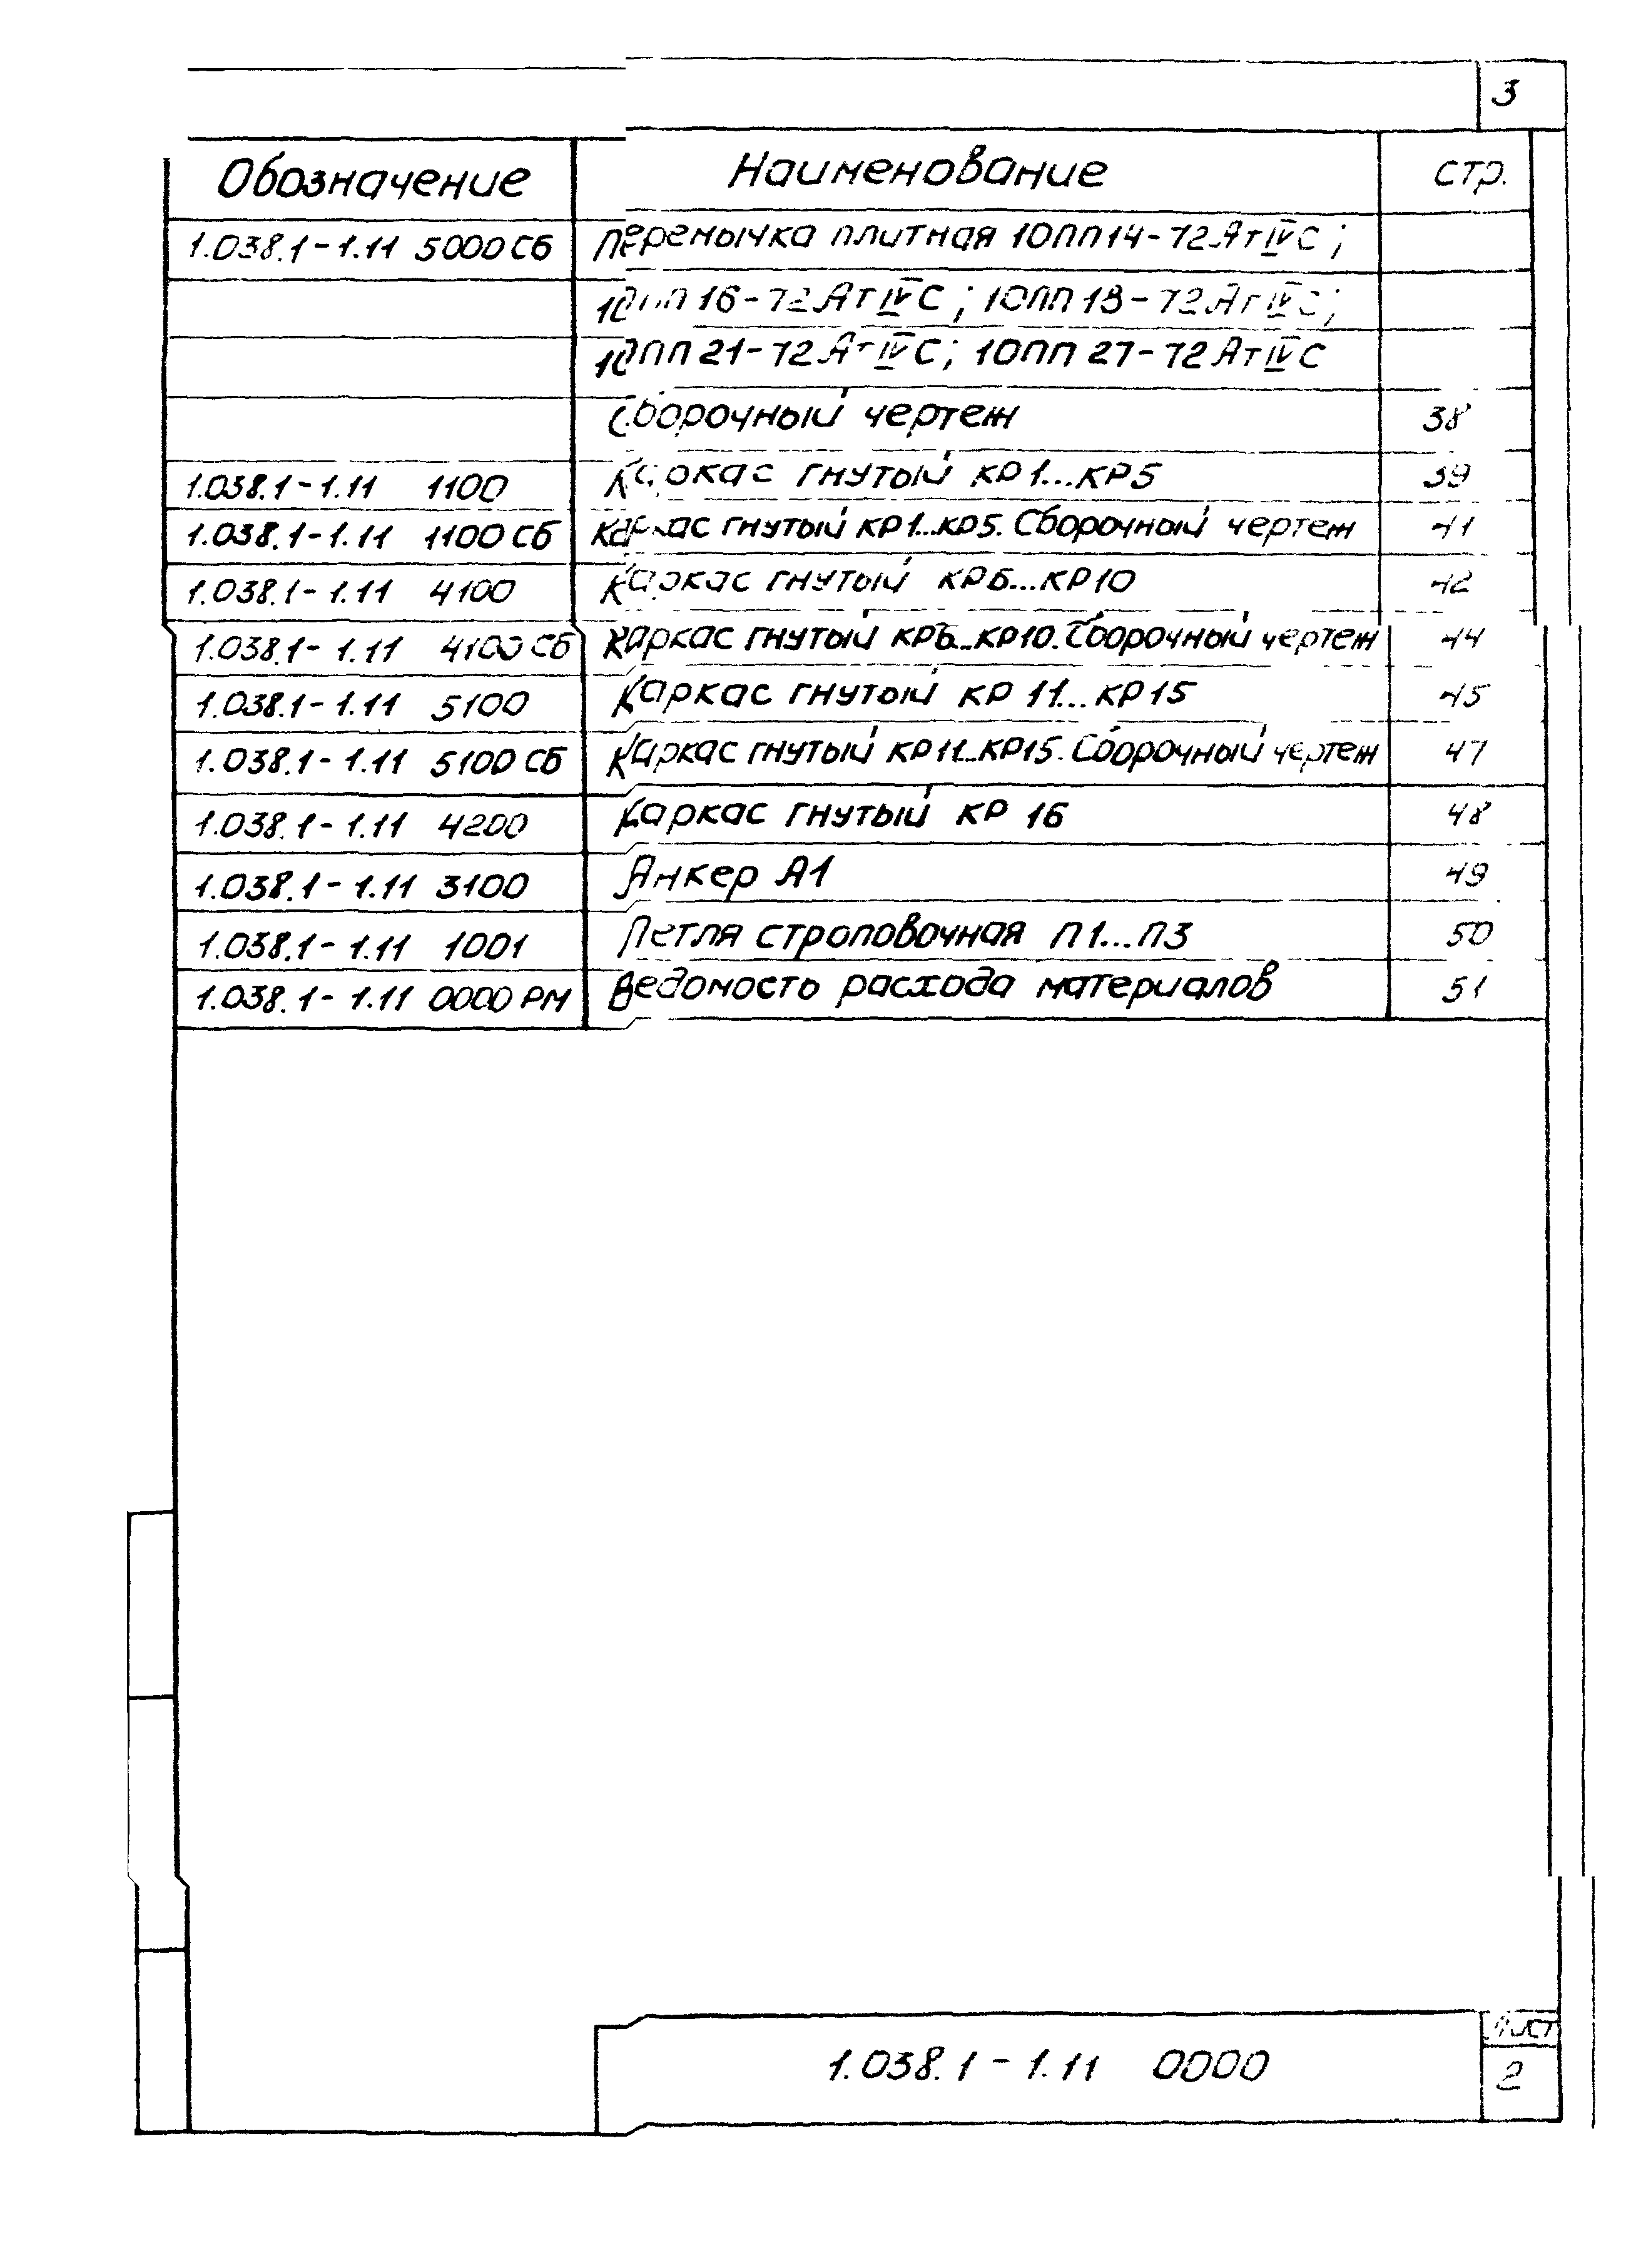 3
Обозначение Наименование стр.
1.038.1-1.11 5000 СБ Перемычка плитная 10ПП14-72АтIVС;
10ПП16-72АтIVС; 10ПП18-72АтIVС;
10ПП21-72АтIVС; 10ПП27-72АтIVС
Сборочный чертеж 38
1.038.1-1.11 1100 Каркас гнутый КР1...КР5 39
1.038.1-1.11 1100 СБ Каркас гнутый КР1...КР5. Сборочный чертеж 41
1.038.1-1.11 4100 Каркас гнутый КР6...КР10 42
1.038.1-1.11 4100 СБ Каркас гнутый КР6...КР10. Сборочный чертеж 44
1.038.1-1.11 5100 Каркас гнутый КР11...КР15 45
1.038.1-1.11 5100 СБ Каркас гнутый КР11...КР15. Сборочный чертеж 47
1.038.1-1.11 4200 Каркас гнутый КР 16 48
1.038.1-1.11 3100 Анкер А1 49
1.038.1-1.11 1001 Петля строповочная П1...П3 50
1.038.1-1.11 0000 РМ Ведомость расхода материалов 51
Лист
1.038.1-1.11 0000 2